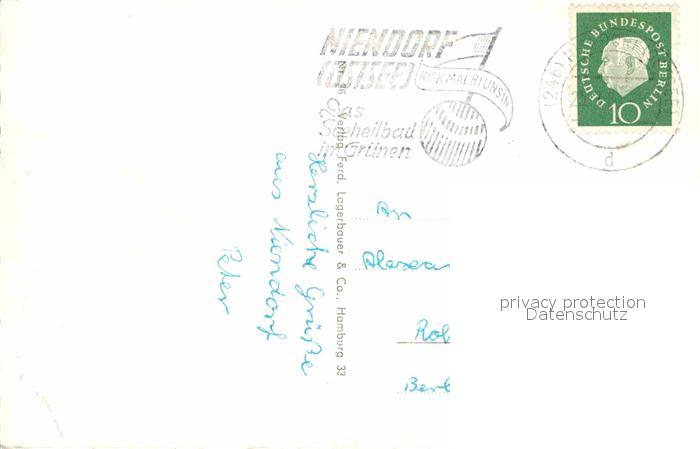 NIENDORF
(OSTSEE)
KIEK MAL BI UNS IN
das
Seeheilbad
im Grünen
DEUTSCHE BUNDESPOST BERLIN
10
(24b)
d
Verlag Ferd. Lagerbauer & Co., Hamburg 33
Herzliche Grüße
aus Niendorf
Peter
An
Alexan
Rol
Berl
privacy protection
Datenschutz